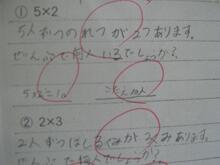 ① 5×2
5人ずつのれつが2つあります。
ぜんぶで何人いるでしょうか?
5×2=10 こたえ10人
② 2×3
2人ずつ
ぜんぶで何人でしょうか